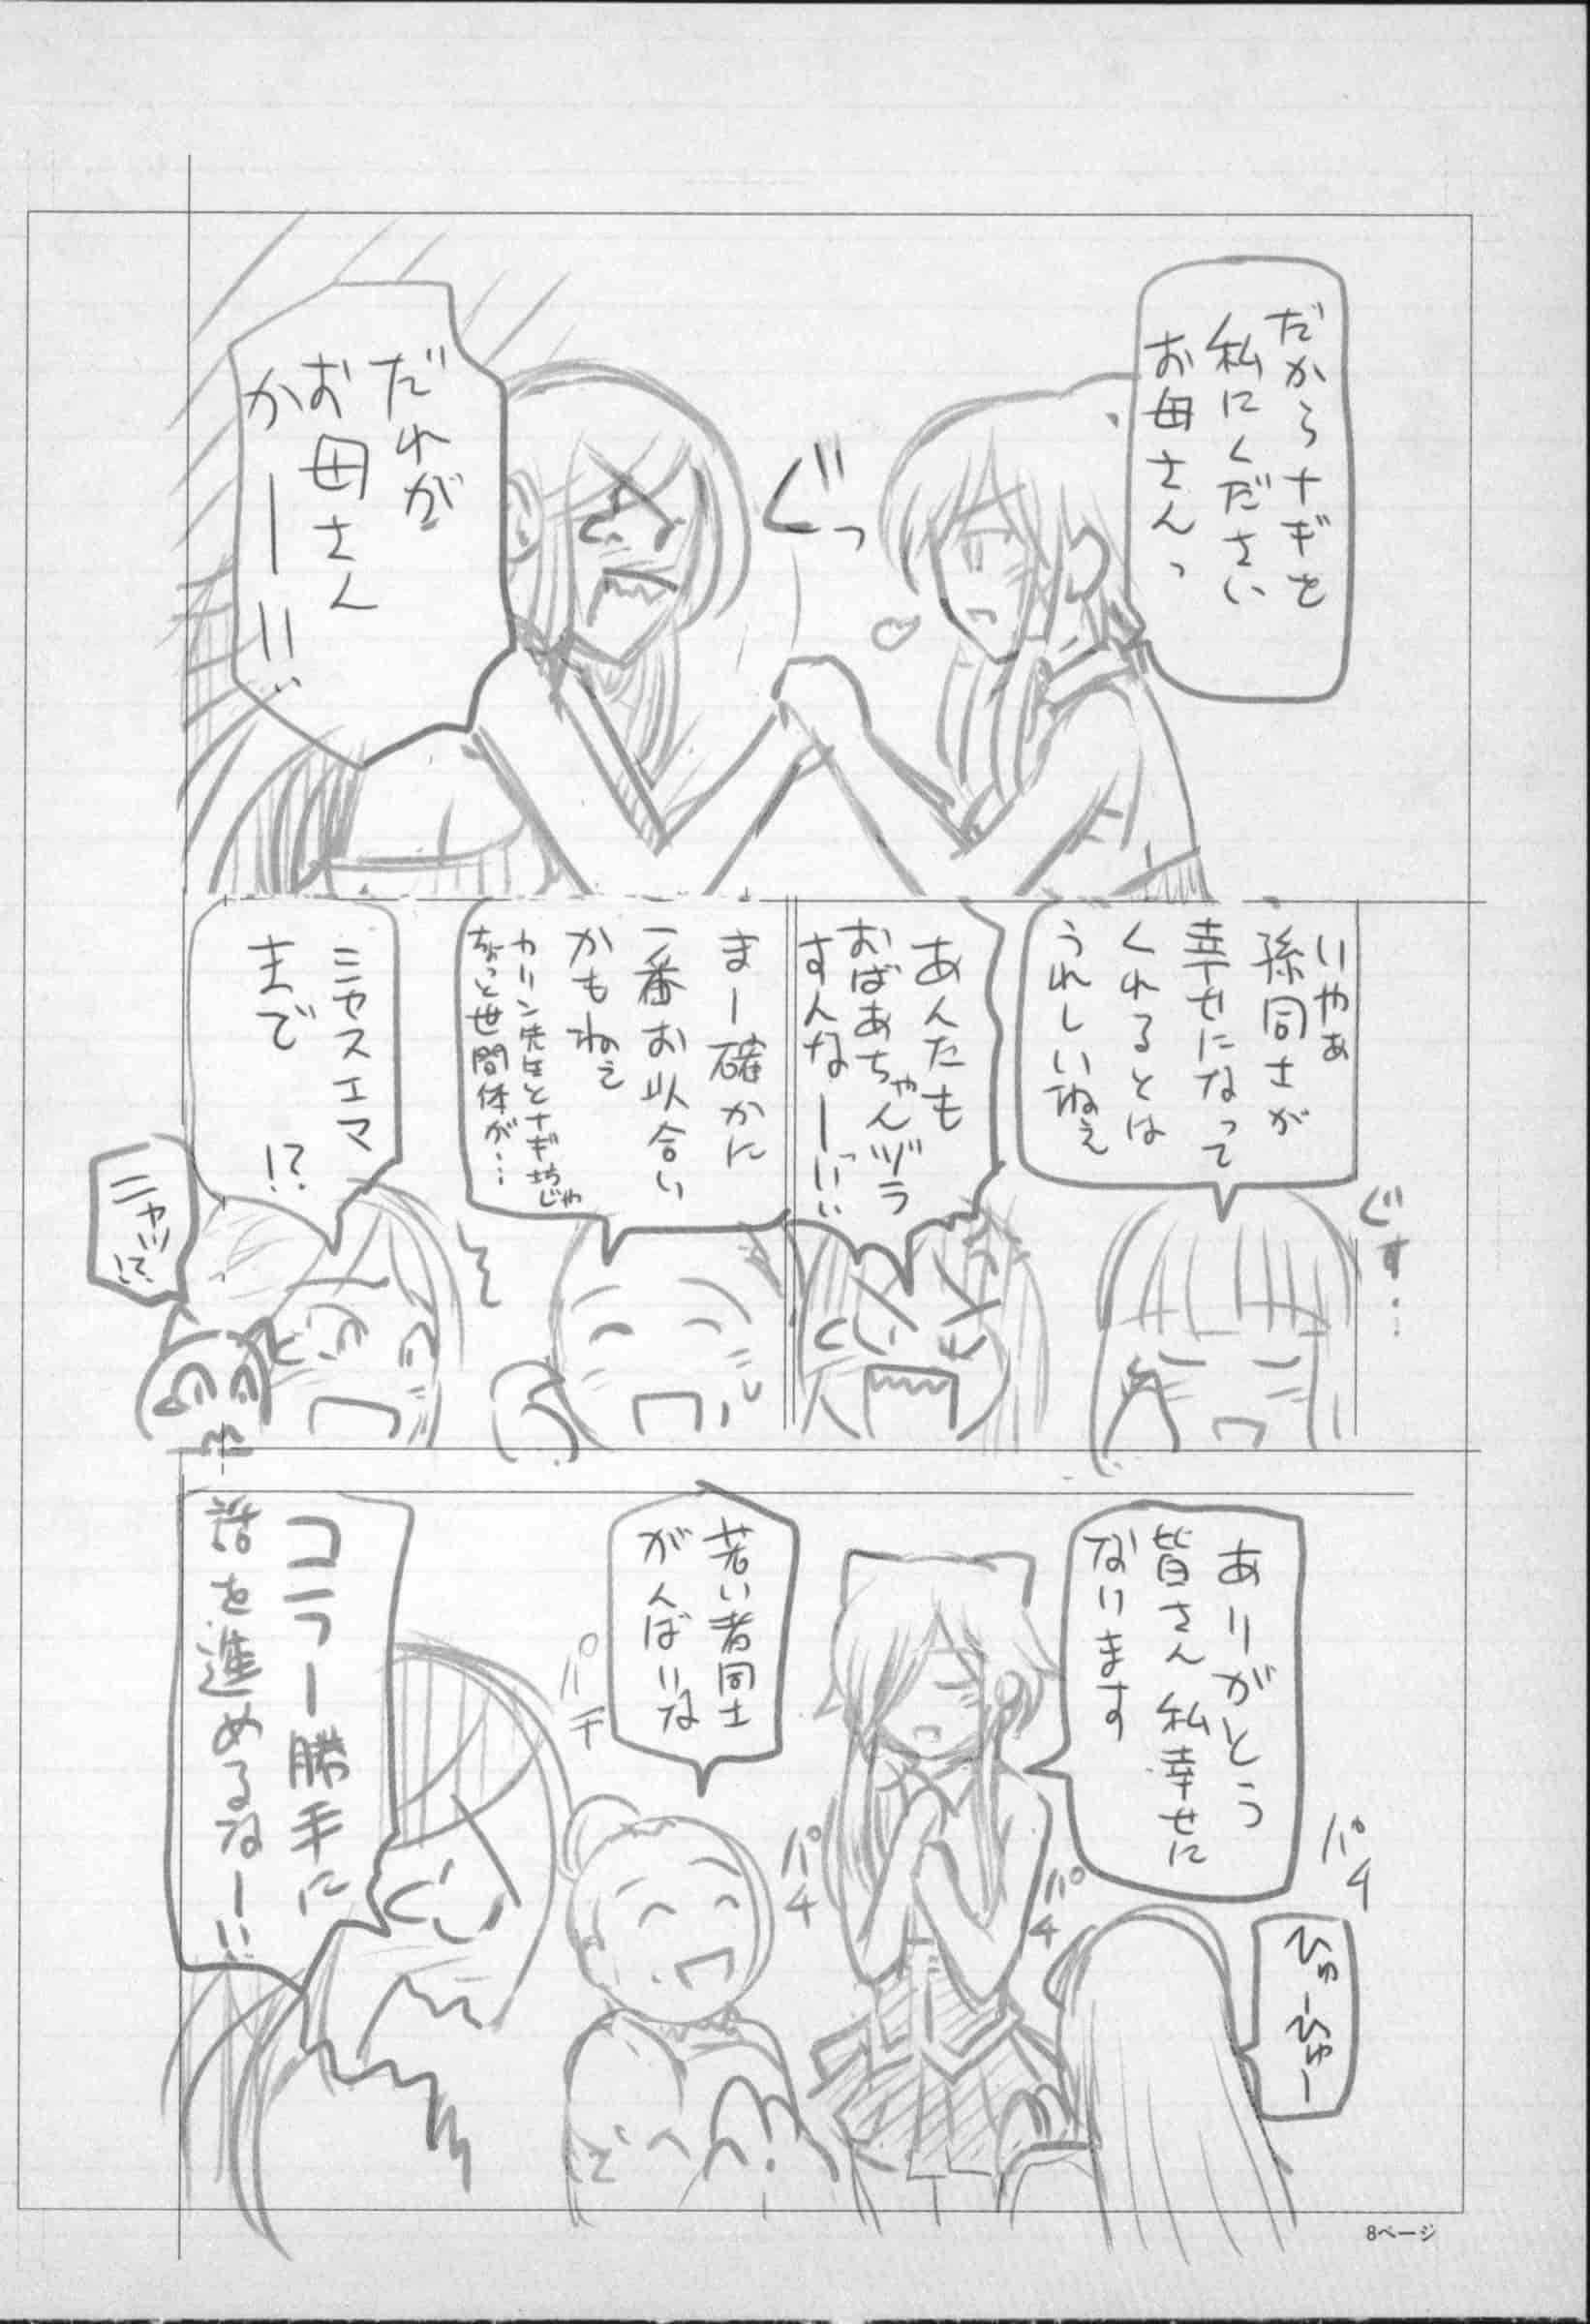 だからナギを
私にください
お母さんっ
ぐっ
だれが
お母さん
かー!!
いやぁ
孫同士が
幸せになって
くれるとは
うれしいねぇ
ぐす…
あんたも
おばあちゃんヅラ
すんなーっ!!
まー確かに
一番お似合い
かもねぇ
カリン先生とナギ坊じゃ
ちょっと世間体が…
ミヤスエマ
まで
!?
ニャッ!?
ありがとう
皆さん 私幸せに
なります
パチ
ひゅーひゅー
パチ
パチ
若い者同士
がんばりな
パチ
コラー勝手に
話を進めるなー!!
8ページ